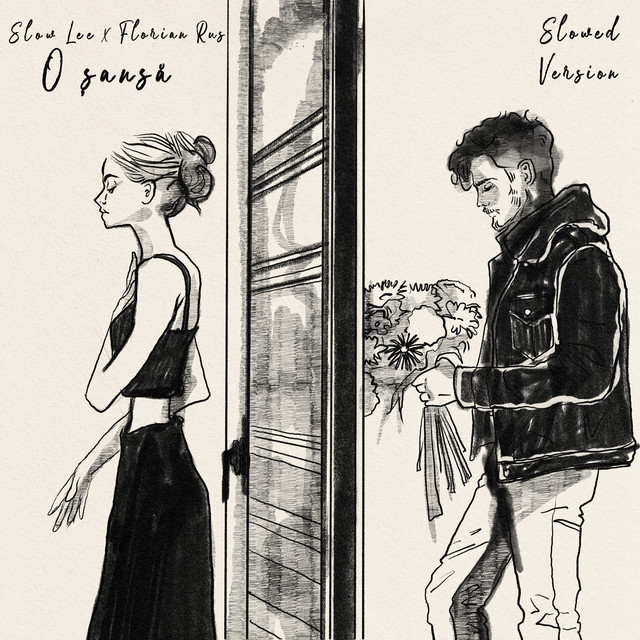 Slow Lee x Florian Rus
O șansă
Slowed
Version